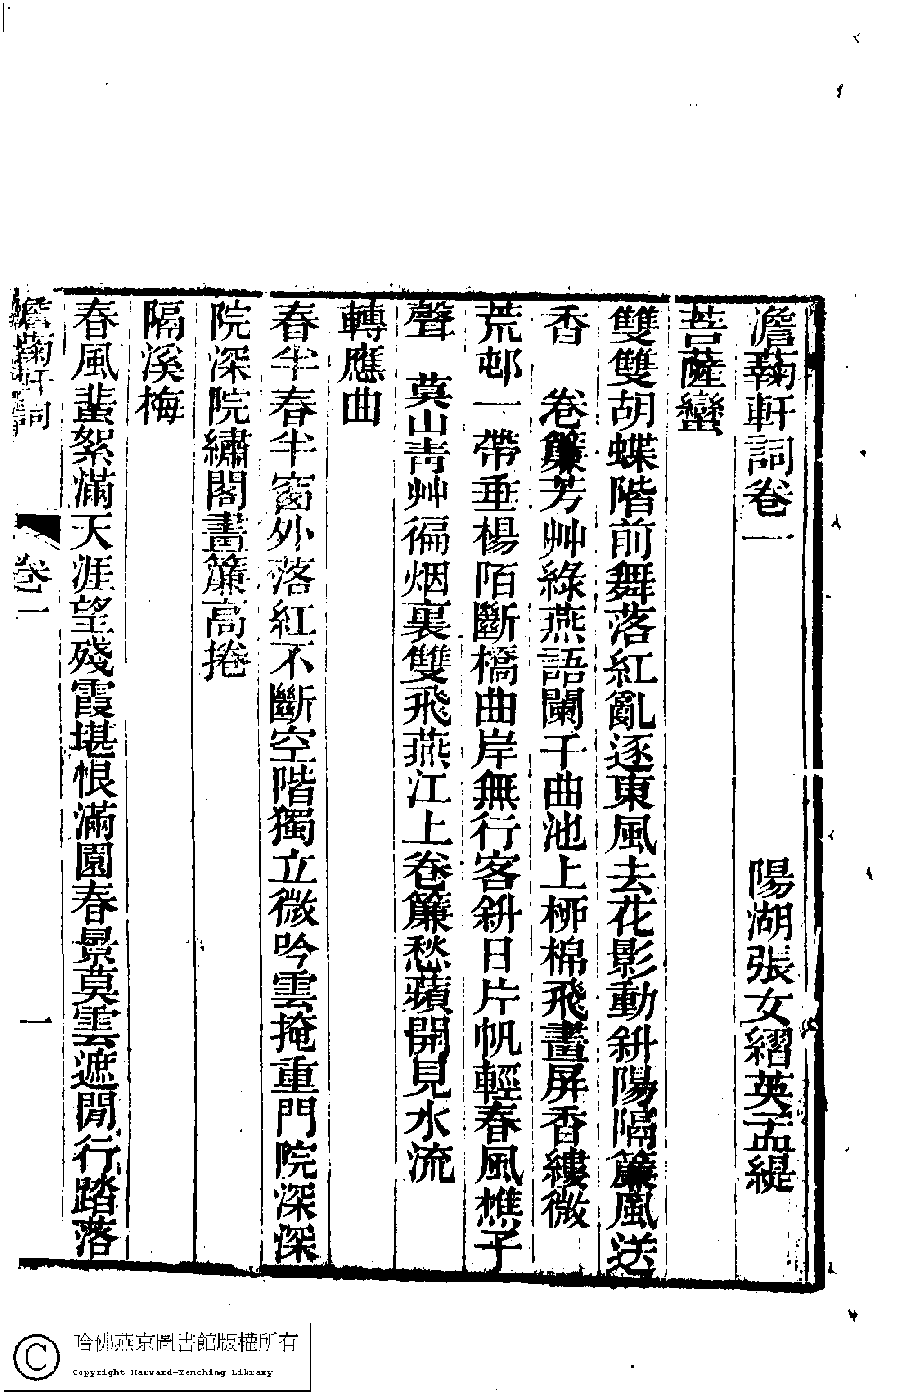 澹蘜軒詞卷一
陽湖張女䌌英孟緹
菩薩蠻
雙雙胡蝶階前舞落紅亂逐東風去花影動斜陽隔簾風送
香　卷簾芳艸綠燕語闌干曲池上桺棉飛畫屏香縷微
荒邨一帶垂楊陌斷橋曲岸無行客斜日片帆輕春風樵子
聲　莫山青艸徧烟裏雙飛燕江上卷簾愁蘋開見水流
轉應曲
春半春半窗外落紅不斷空階獨立微吟雲掩重門院深深
院深院繡閣畫簾高捲
隔溪梅
春風蜚絮滿天涯望殘霞堪恨滿園春景莫雲遮閒行踏落
澹蘜軒詞
卷一
一
哈佛燕京圖書館版權所有
Copyright Harvard-Yenching Library